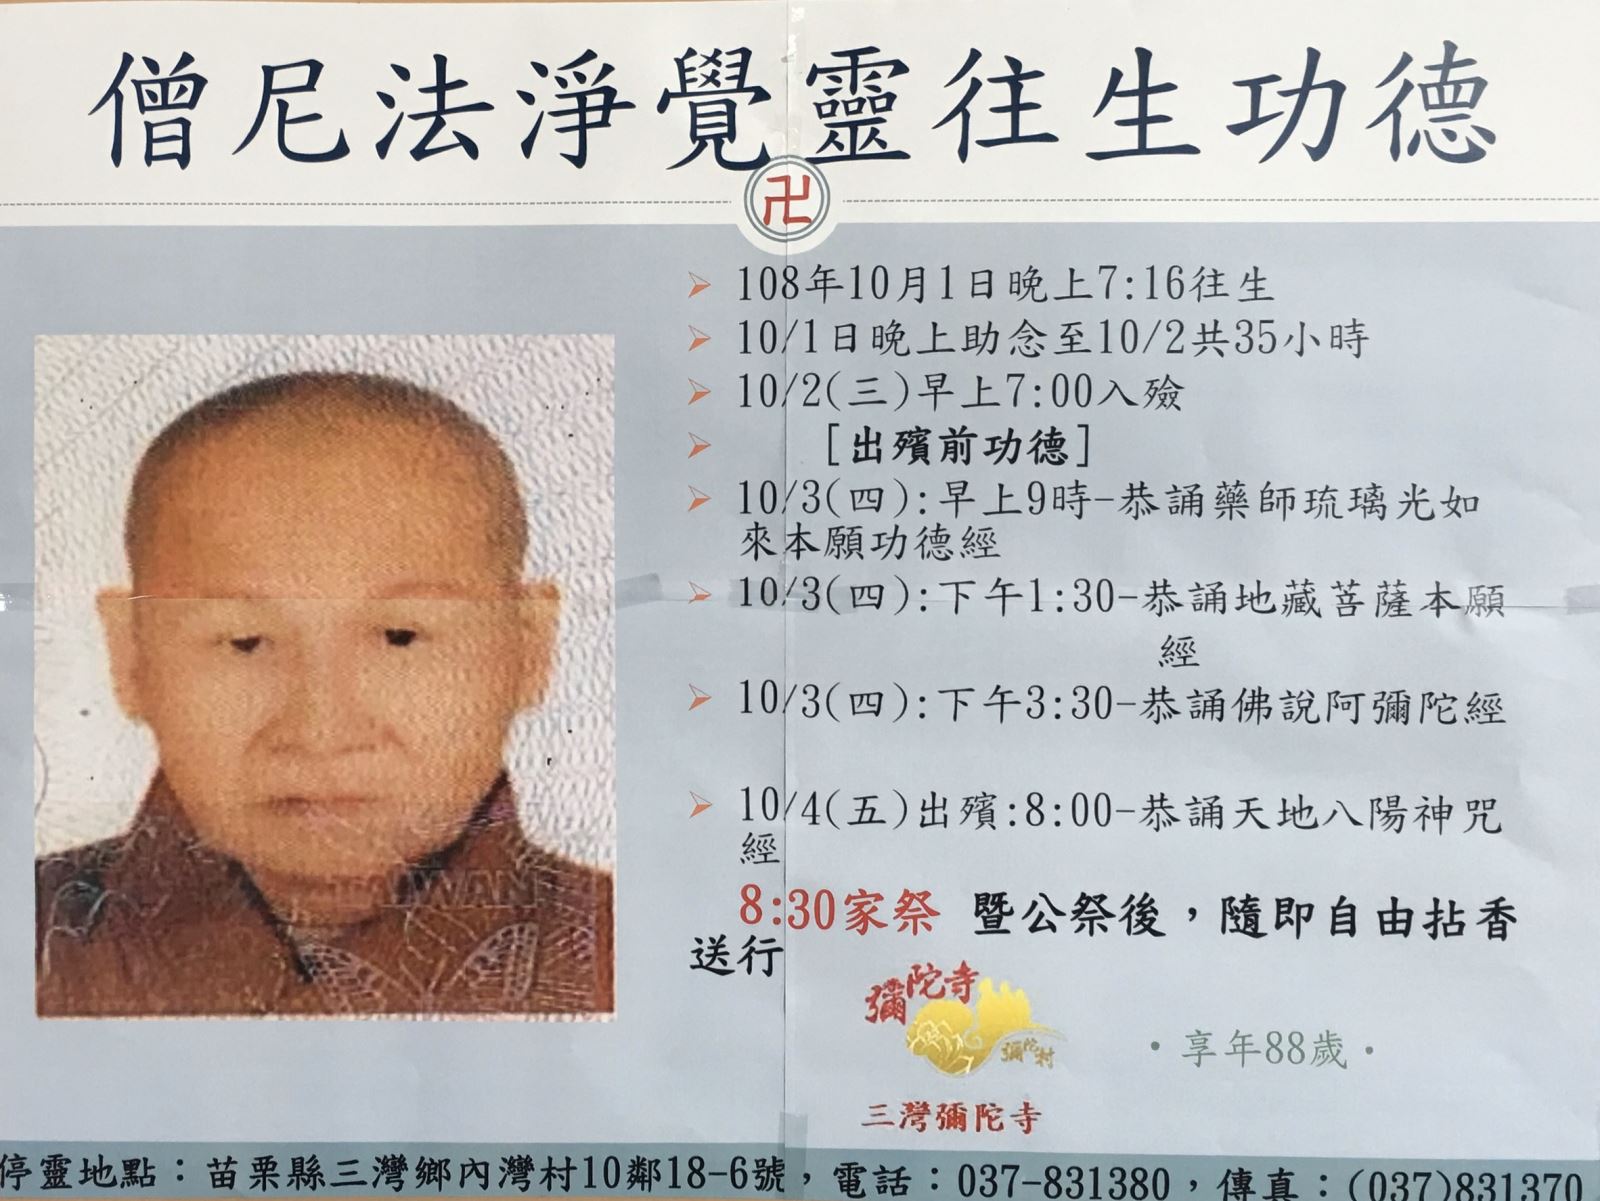 僧尼法淨覺靈往生功德
卍
108年10月1日晚上7:16往生
10/1日晚上助念至10/2共35小時
10/2(三)早上7:00入殮
[出殯前功德]
10/3(四):早上9時-恭誦藥師琉璃光如
來本願功德經
10/3(四):下午1:30-恭誦地藏菩薩本願
經
10/3(四):下午3:30-恭誦佛說阿彌陀經
10/4(五)出殯:8:00-恭誦天地八陽神咒
經
8:30家祭 暨公祭後，隨即自由拈香
送行
TAIWAN
彌陀寺
彌陀村
•享年88歲•
三灣彌陀寺
停靈地點：苗栗縣三灣鄉內灣村10鄰18-6號，電話：037-831380，傳真：(037)831370